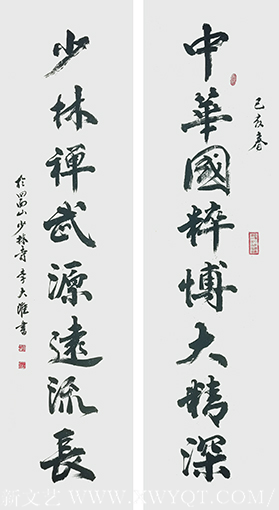 己亥春
中華國粹博大精深
少林禪武源遠流長
於嵩山少林寺 李大書
新文艺 WWW.XWYQT.COM/